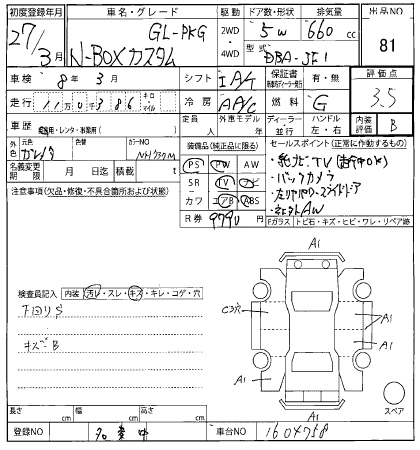 初度登録年月 車名・グレード 駆動 ドア数・形状 排気量 出品NO
27年3月 N-BOXカスタム GL-PKG 2WD・4WD 5W 660cc 81
型式 DBA-JF1
車検 8年3月 シフト IAT 保証書 有・無 評価点 3.5
走行 冷房 AAC 燃料 G
車歴 自家用・レンタ・事業用( ) 外車モデル 年 ディーラー 並行 ハンドル 左・右 内装評価 B
外色 元色 色替 カラーNO
装備品(純正品に限る) セールスポイント(正常に作動するもの)
PS PW AW
名義変更期限 月 日迄 積載 t
SR TV ナビ
カワ エアB ABS
・純ナビTV
・バックカメラ
・左リヤパワースライドドア
・純正AW
R券 9790
注意事項(欠品・修復・不具合箇所および状態)
Fガラス トビ石・キズ・ヒビ・ワレ・リペア跡
検査員記入 内装 汚レ・スレ・キズ・キレ・コゲ・穴
下回りS
キズB
A1
A1
A1
A1
A1
A1
スペア
長さ cm 幅 cm 高さ cm
登録NO 車台NO 1604758